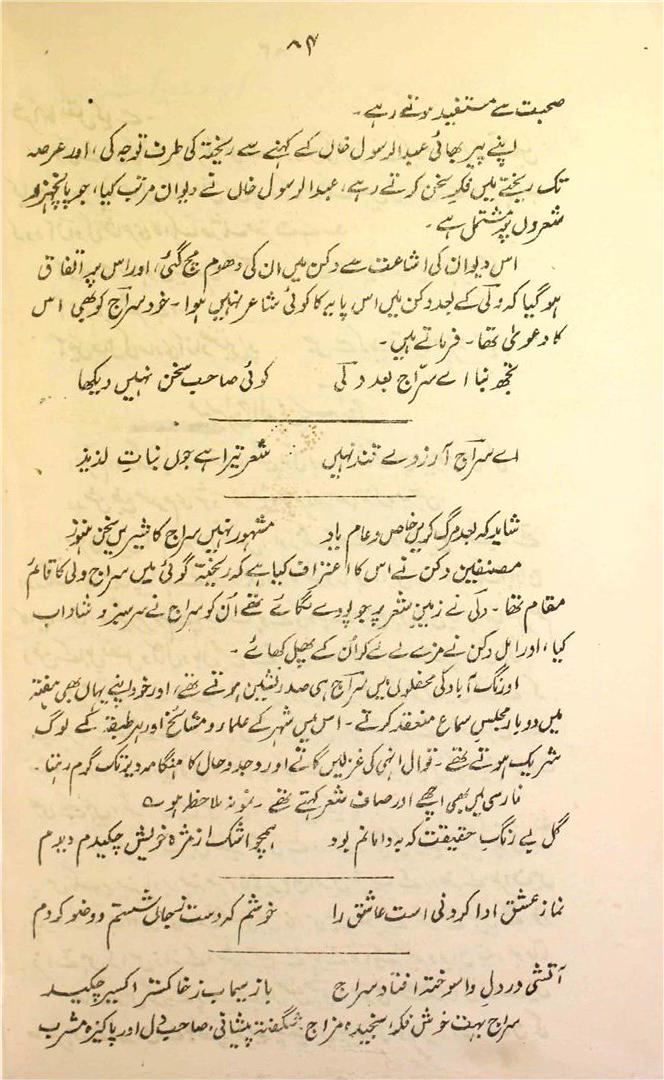 ۸۴
صحبت سے مستفید ہوتے رہے۔
اپنے پیر بھائی عبدالرسول خاں کے کہنے سے ریختہ کی طرف توجہ کی، اور عرصہ
تک ریختے میں فکرِ سخن کرتے رہے، عبدالرسول خاں نے دیوان مرتب کیا، جو پانچہزار
شعروں پر مشتمل ہے۔
اس دیوان کی اشاعت سے دکن میں ان کی دھوم مچ گئی، اور اس پر اتفاق
ہوگیا کہ ولی کے بعد دکن میں اس پایہ کا کوئی شاعر نہیں ہوا۔ خود سراج کو بھی اس
کا دعویٰ تھا۔ فرماتے ہیں۔
تجھ بنا اے سراج بعد ولی کوئی صاحب سخن نہیں دیکھا
اے سراج آرزوے قند نہیں شعر تیرا ہے جوں نباتِ لذیذ
شاید کہ بعد مرگ کریں خاص و عام یاد مشہور نہیں سراج کا شیریں سخن ہنوز
مصنفین دکن نے اس کا اعتراف کیا ہے کہ ریختہ گوئی میں سراج ولی کا قائم
مقام تھا۔ ولی نے زمینِ شعر پر جو پودے لگائے تھے اُن کو سراج نے سرسبز و شاداب
کیا، اور اہل دکن نے مزے لے لے کر اُن کے پھل کھائے۔
اورنگ آباد کی محفلوں میں سراج ہی صدر نشین ہوتے تھے، اور خود اپنے یہاں بھی ہفتہ
میں دو بار مجلس سماع منعقد کرتے۔ اس میں شہر کے علما و مشائخ اور ہر طبقہ کے لوگ
شریک ہوتے تھے۔ قوال انہی کی غزلیں گاتے اور وجد و حال کا ہنگامہ دیر تک گرم رہتا۔
فارسی میں بھی اچھے اور صاف شعر کہتے تھے۔ نمونہ ملاحظہ ہو ے
گل بے رنگِ حقیقت کہ بہ دامانم بود ہمچو اشک از مژہ خویش چکیدم دیدم
نماز عشق ادا کردنی است عاشق را خوشم کہ دست شستم و وضو کردم
آتشی در دلِ وا سوختہ افتاد سراج باز سیماب ز خاکستر اکسیر چکید
سراج بہت خوش فکر، سنجیدہ مزاج شگفتہ پیشانی، صاحبِ دل اور پاکیزہ مشرب